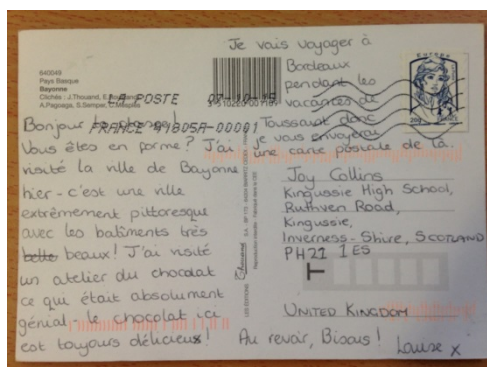 640049
Pays Basque
Bayonne
Clichés : J.Thouand,
A.Pagoaga, S.Semper,
LA POSTE 07-10-15
FRANCE 41805A-00001
Bonjour
Vous êtes en forme? J'ai
visité la ville de Bayonne
hier - c'est une ville
extrêmement pittoresque
avec les batîments très
belle beaux! J'ai visité
un atelier du chocolat
ce qui était absolument
génial - le chocolat ici
est toujours délicieux!
Je vais voyager à
Bordeaux
pendant les
vacances de
Toussaint donc
je vous envoyerai
une carte postale de là.
Au revoir, Bisous!
Louise x
Europe
Joy Collins
Kingussie High School,
Ruthven Road,
Kingussie,
Inverness-Shire, SCOTLAND
PH21 1ES
T
UNITED KINGDOM